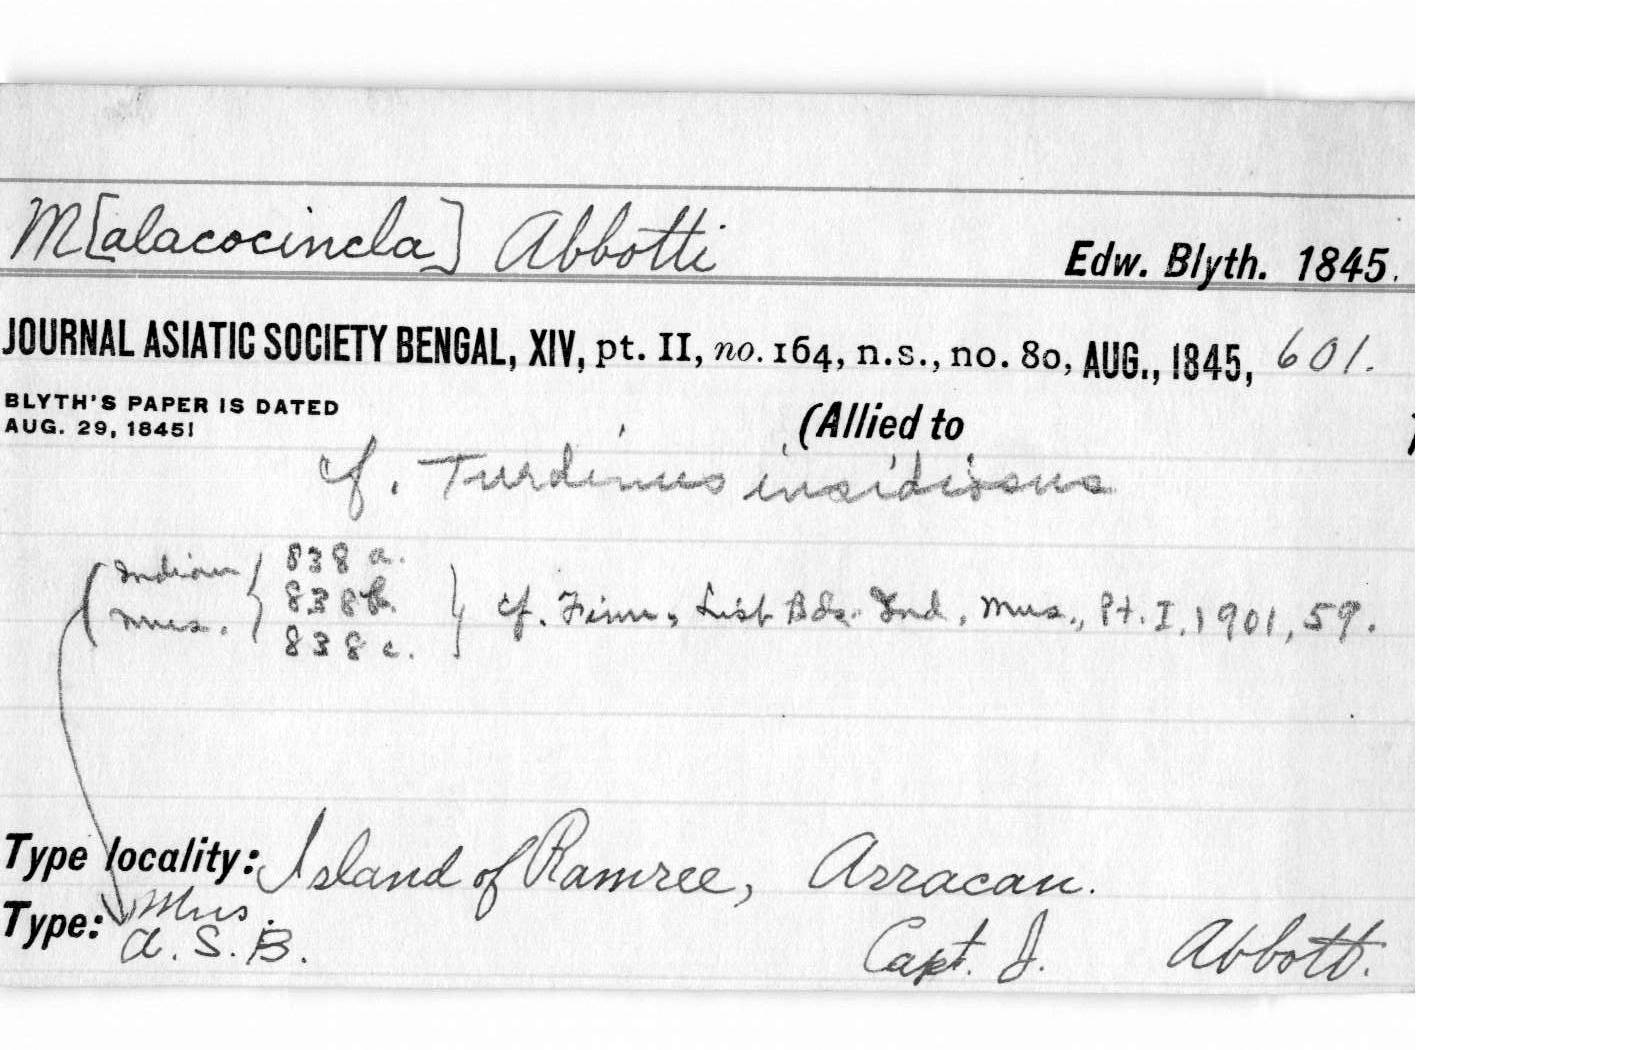 M[alacocincla] Abbotti Edw. Blyth. 1845.
JOURNAL ASIATIC SOCIETY BENGAL, XIV, pt. II, no. 164, n.s., no. 80, AUG., 1845, 601.
BLYTH'S PAPER IS DATED
AUG. 29, 1845!
(Allied to )
cf. Turdinus insidiosus
(Indian Mus. { 838 a.
838 b.
838 c. } cf. Finn, List Bds. Ind. Mus., Pt. I, 1901, 59.
Type locality: Island of Ramree, Arracan.
Type: Mus.
A. S. B. Capt. J. Abbott.